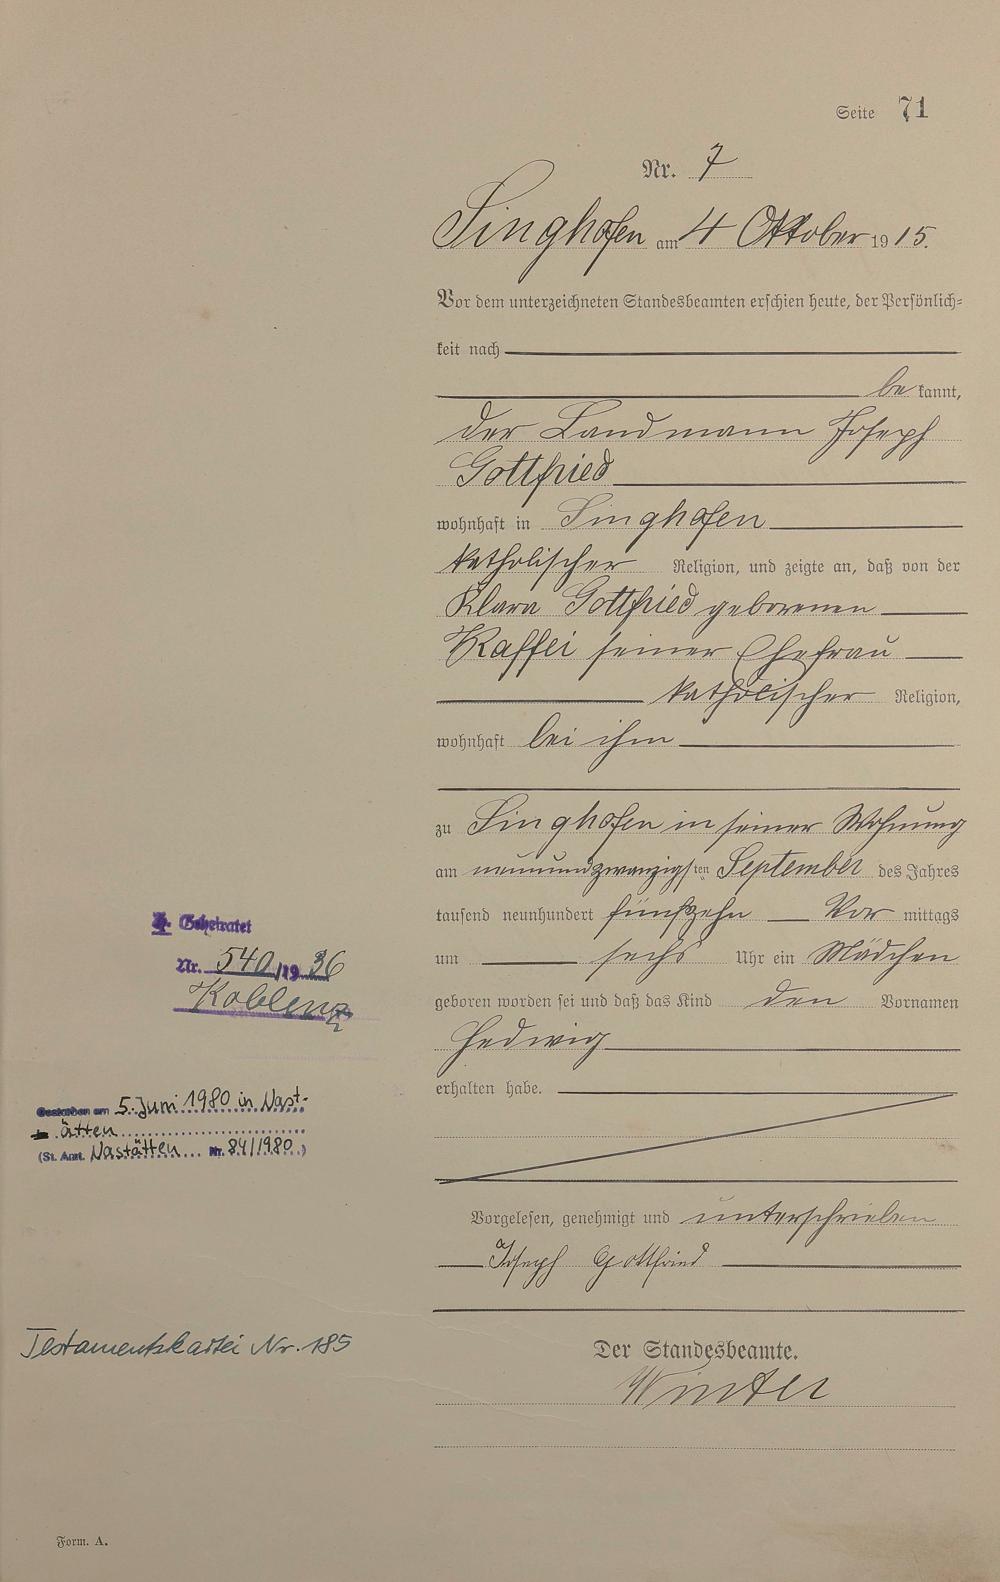 Seite 71
Nr. 7
Singhofen am 4 Oktober 1915.
Vor dem unterzeichneten Standesbeamten erschien heute, der Persönlich-
keit nach
be kannt,
der Landmann Joseph
Gottfried
wohnhaft in Singhofen
katholischer Religion, und zeigte an, daß von der
Klara Gottfried geborenen
Kaffei seiner Ehefrau
katholischer Religion,
wohnhaft bei ihm
zu Singhofen in seiner Wohnung
am neunundzwanzigsten September des Jahres
tausend neunhundert fünfzehn Vor mittags
um sechs Uhr ein Mädchen
geboren worden sei und daß das Kind den Vornamen
Hedwig
erhalten habe.
Vorgelesen, genehmigt und unterschrieben
Joseph Gottfried
Der Standesbeamte.
Winter
Geheiratet
Nr. 540/1936
Koblenz
Gestorben am 5. Juni 1980 in Nast-
ätten
(St. Amt. Nastätten Nr. 84/1980)
Testamentskartei Nr. 185
Form. A.